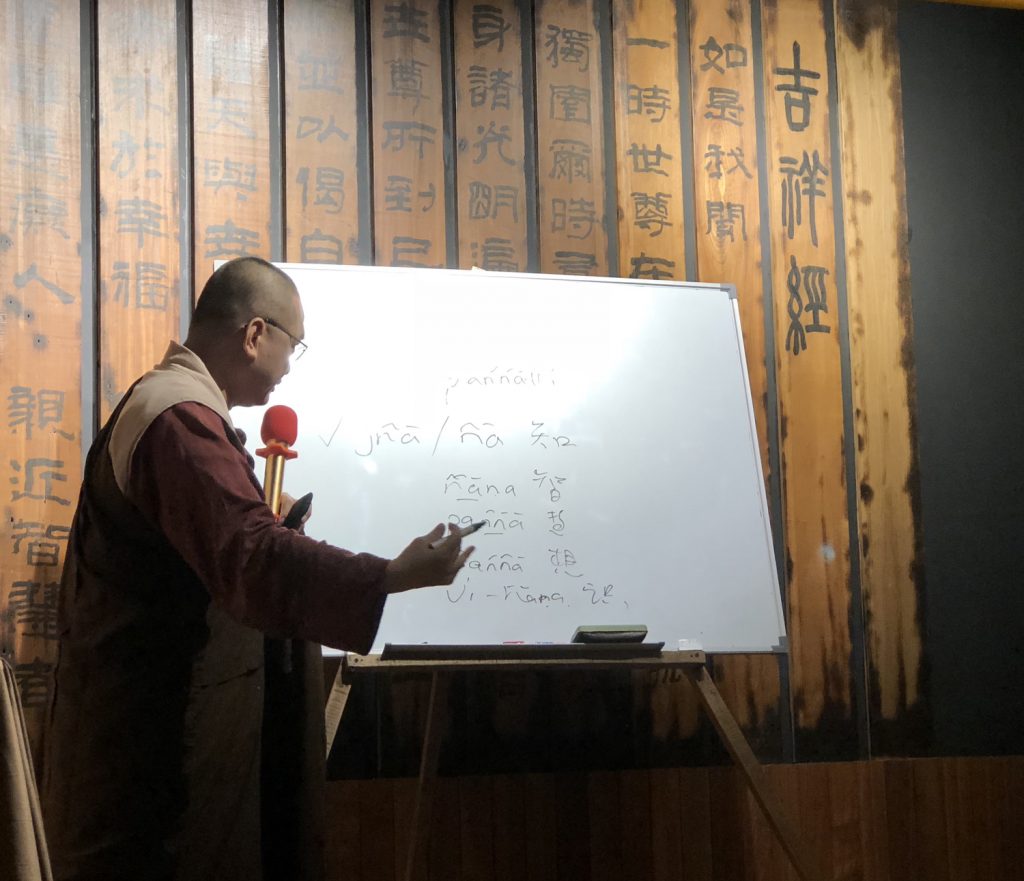 吉祥經
如是我聞
一時世尊在
獨園爾時
身諸光明遍
世尊所到已
並以偈白
天與幸
求於幸福
人
親近智慧者
√ jñā / ñā 知
ñāna 智
paññā 慧
aññā 想